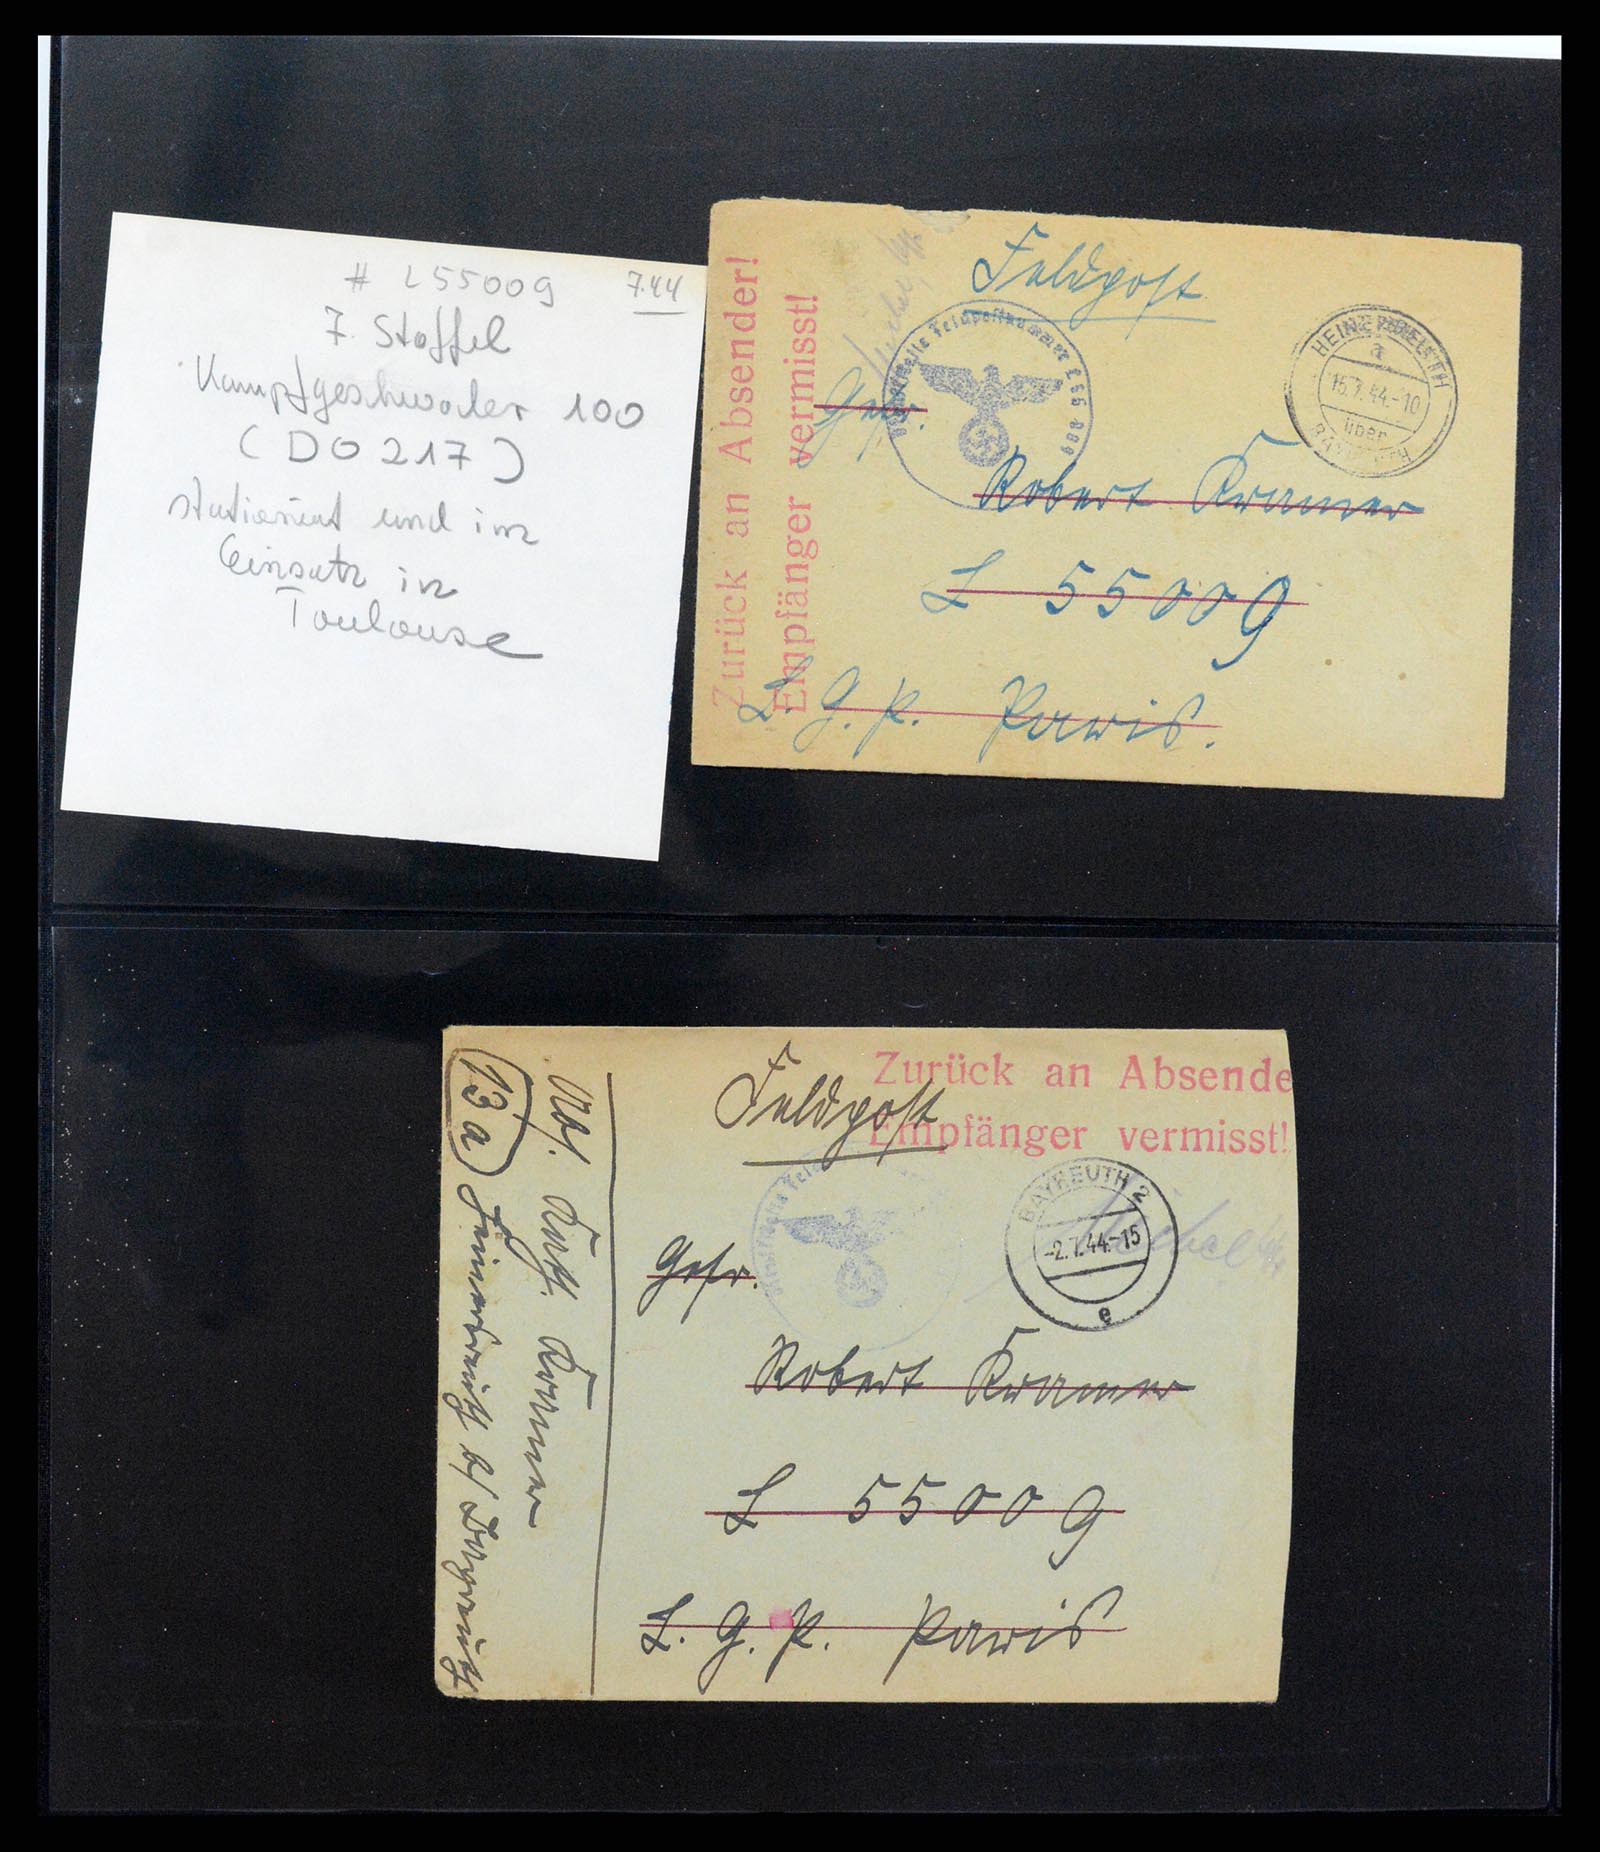 # L 55009 7.44
7. Staffel
Kampfgeschwader 100
(DO 217)
stationiert und im
Einsatz in
Toulouse
Zurück an Absender!
Empfänger vermisst!
Feldpost
Feldpostnummer L 55 009
HEINERSREUTH
a
15.7.44.-10
über
BAYREUTH
Gefr.
Robert Kramer
L 55009
L. G. P. Paris.
Zurück an Absende
Empfänger vermisst!
Feldpost
BAYREUTH 2
-2.7.44.-15
e
Gefr.
Robert Kramer
L 55009
L. G. P. Paris
Abs. Kath. Kramer
(13a) Heinersreuth b/ Bayreuth